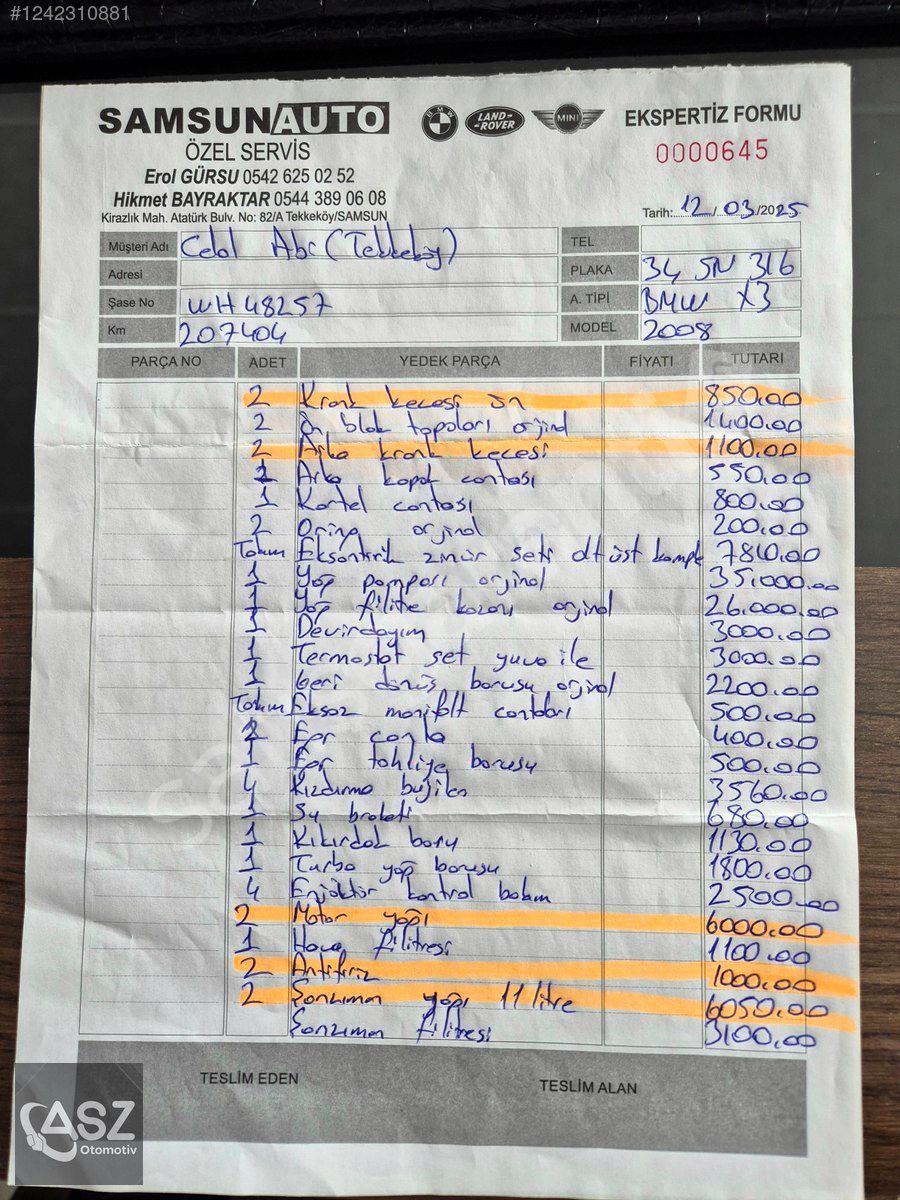 #1242310881
SAMSUNAUTO
ÖZEL SERVİS
Erol GÜRSU 0542 625 02 52
Hikmet BAYRAKTAR 0544 389 06 08
Kirazlık Mah. Atatürk Bulv. No: 82/A Tekkeköy/SAMSUN
BMW
LAND-ROVER
MINI
EKSPERTİZ FORMU
0000645
Tarih: 12/03/2025
Müşteri Adı Celal Abi (Tekkeköy)
Adresi
Şase No WH48257
Km 207404
TEL
PLAKA 34 SN 316
A. TİPİ BMW X3
MODEL 2008
PARÇA NO ADET YEDEK PARÇA FİYATI TUTARI
2 Krank kecesi ön 850.00
2 Ön blok tapaları orjinal 1400.00
2 Arka krank kecesi 1100.00
Arka kapak contası 550.00
1 Kartel contası 800.00
2 Oring orjinal 200.00
Takım Eksantirik zincir seti alt üst komple 7810.00
1 Yağ pompası orjinal 35.000.00
1 Yağ filitre kazanı orjinal 26.000.00
1 Devirdayım 3000.00
1 Termostat set yuva ile 3000.00
1 Geri dönüş borusu orjinal 2200.00
Takım Eksoz manifolt contaları 500.00
2 Egr conta 400.00
1 Egr tahliye borusu 500.00
4 Kızdırma bujiler 3560.00
1 Su braketi 680.00
1 Kıkırdak boru 1130.00
1 Turbo yağ borusu 1800.00
4 Enjöktör kontrol bakım 2500.00
2 Motor yağı 6000.00
1 Hava filitresi 1100.00
2 Antifiriz 1000.00
2 Şanzıman yağı 11 litre 6050.00
Şanzıman filitresi 3100.00
TESLİM EDEN TESLİM ALAN
ASZ
Otomotiv